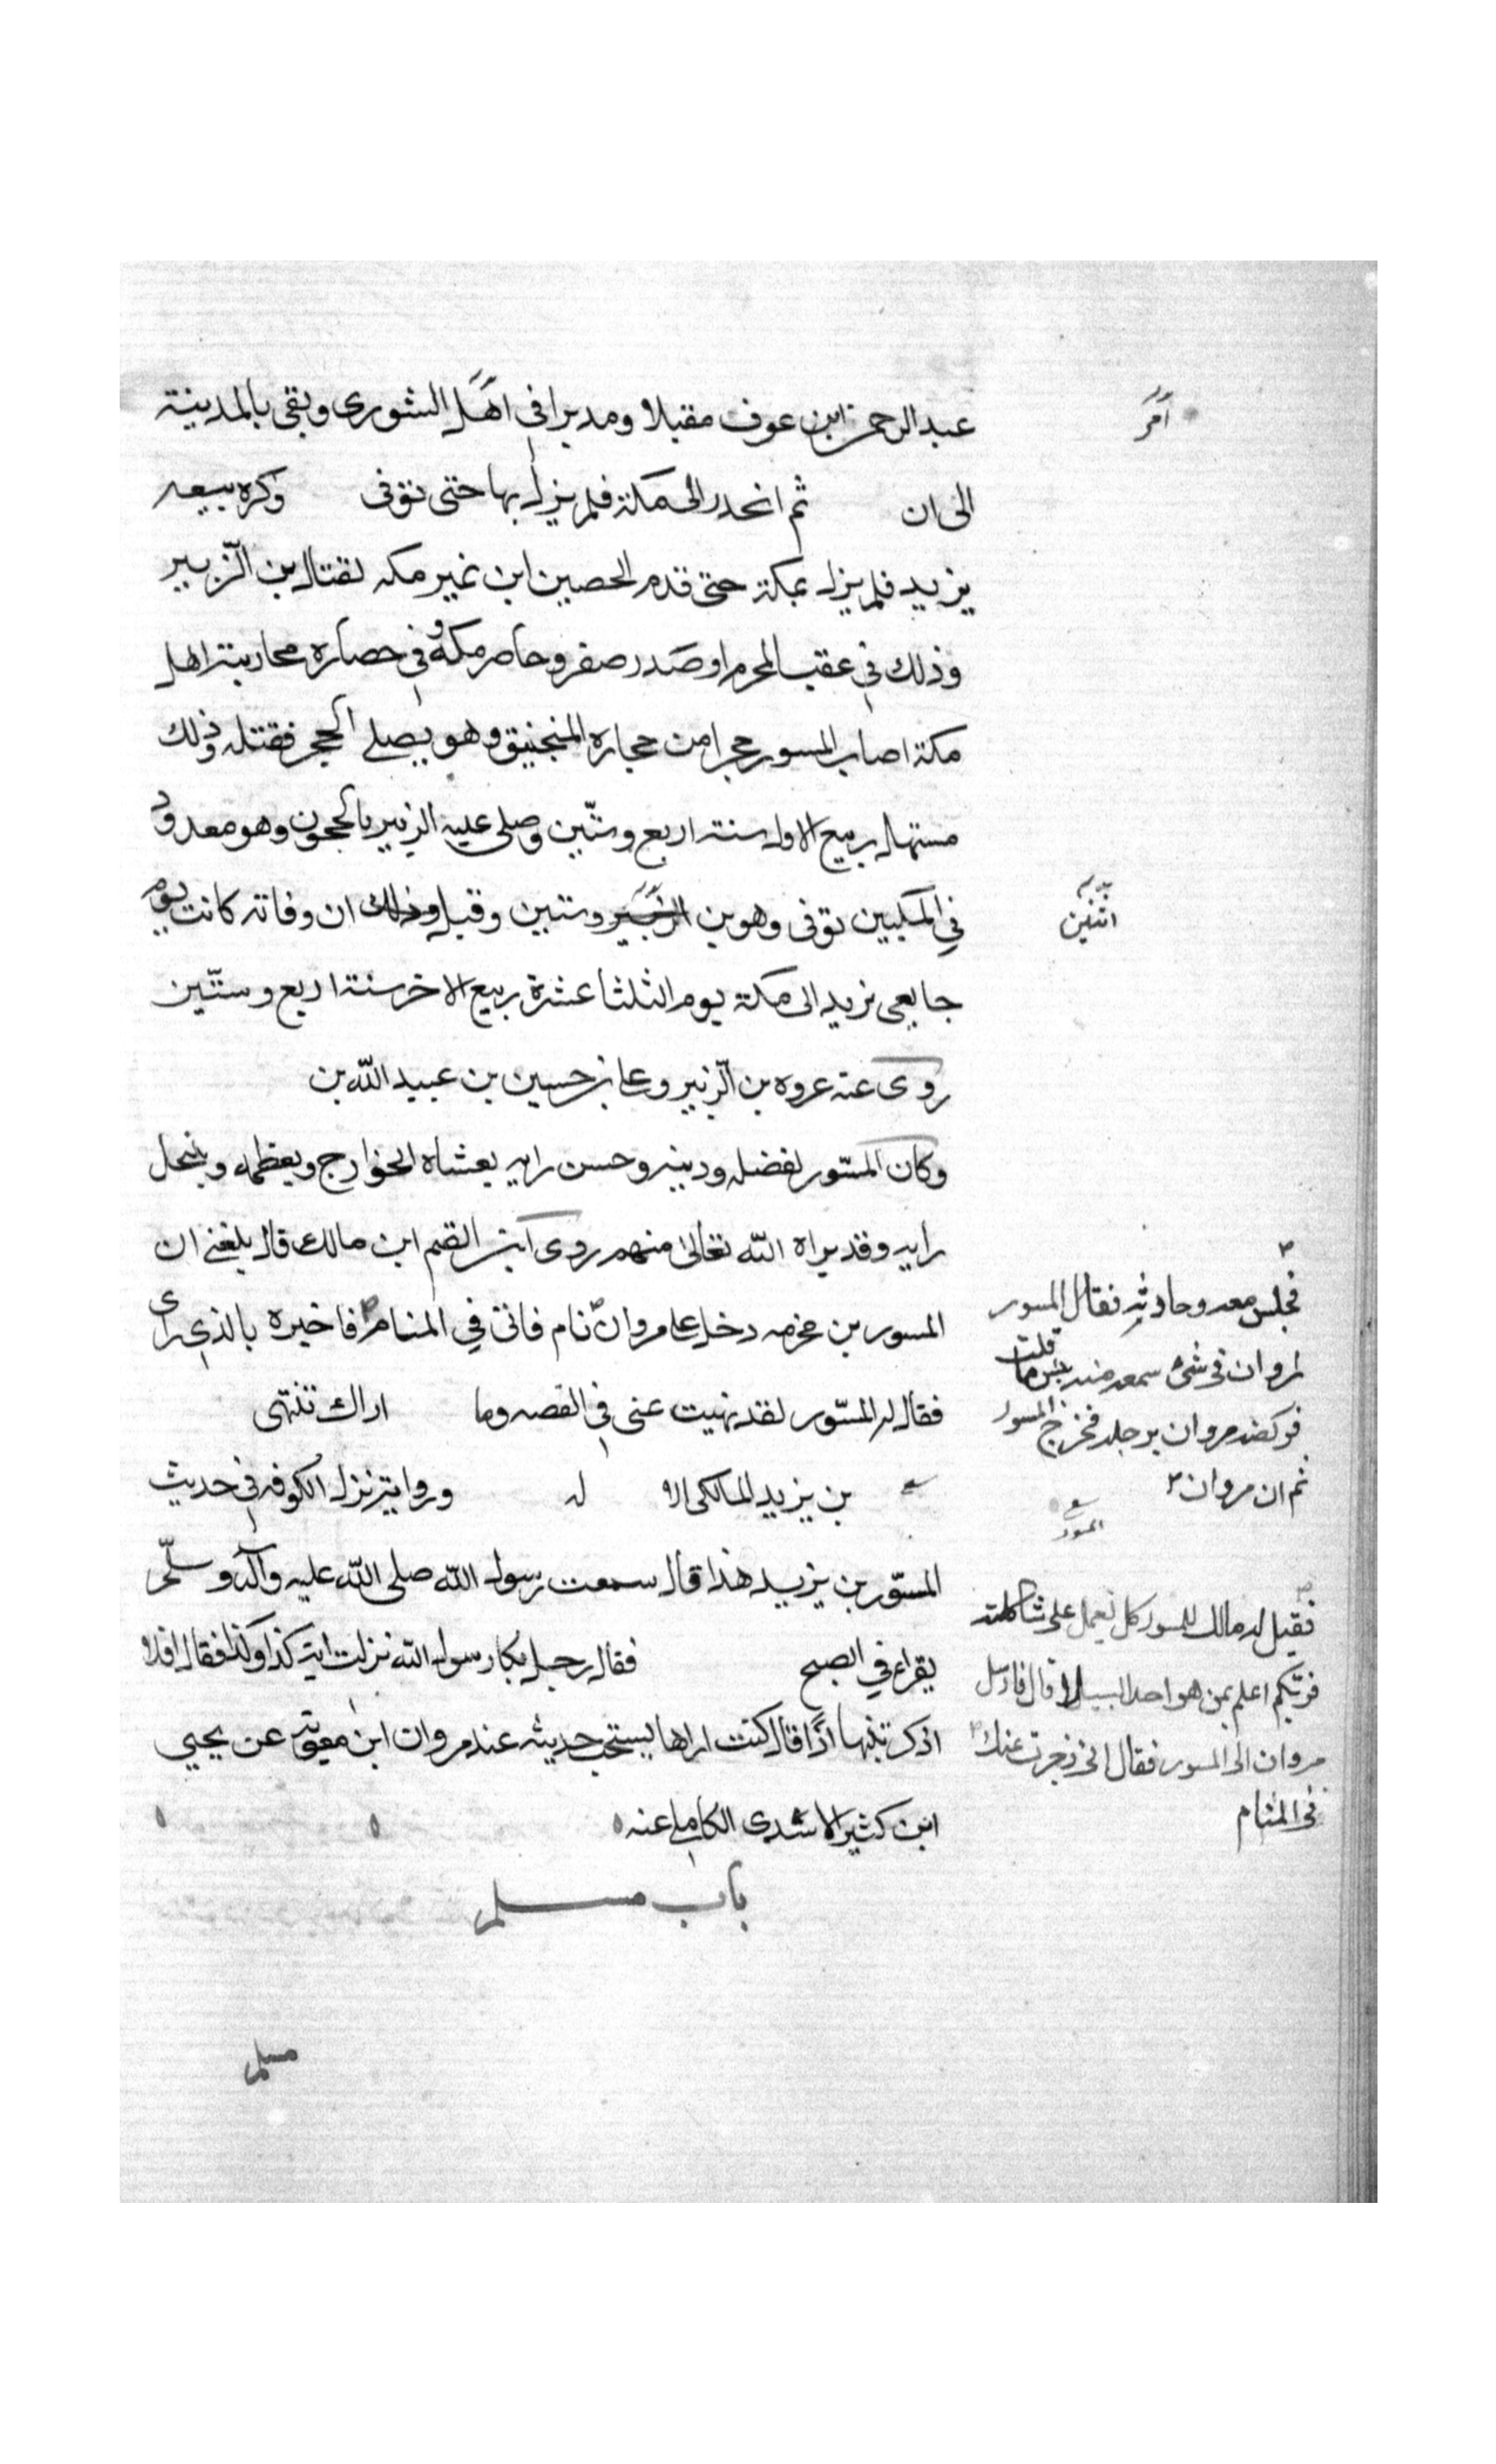 عبد الرحمن ابن عوف مقبلا ومدبرا في اهل الشورى وبقى بالمدينة
امر
الى ان ثم انحدر الى مكة فلم يزل بها حتى توفى وكره بيعه
يزيد فلم يزل بمكة حتى قدم الحصين ابن نمير مكه لقتال بن الزبير
وذلك في عقب المحرم او صدر صفر وحاصر مكة وفي حصاره محاربته اهل
مكة اصاب المسور حجرا من حجاره المنجنيق وهو يصلي الحجر فقتله وذلك
مستهل ربيع الاول سنة اربع وستين وصلى عليه الزبير بالحجون وهو معدود
في المكيين توفى وهو بن وستين وقيل ان وفاته كانت يوم
اثنين
جا يعى يزيد الى مكة يوم الثلثا عشرة ربيع الاخر سنة اربع وستين
روى عنه عروه بن الزبير وعا بن حسين بن عبيد الله بن
وكان المسور لفضله ودينه وحسن رايه يغشاه الخوارج ويعظمه وينحل
رايه وقد براه الله تعالى منهم روى ابن القسم ابن مالك قال بلغني ان
المسور بن مخرمه دخل على مروان نام فاتى في المنام فاخبره بالذي راى
فقال له المسور لقد نهيت عنى في القصه وما اراك تنتهى
بن يزيد المالكى الا له وروايته نزل الكوفه في حديث
المسور بن يزيد هذا قال سمعت رسول الله صلى الله عليه وآله وسلم
يقراء في الصبح فقال رجل يكا رسول الله نزلت اية كذا وكذا فقال افلا
اذكرتنيها اذًا قال كنت اراها يستحب حديثه عند مروان ابن معوية عن يحيى
ابن كثير الاسدى الكاملي عنه
باب مسلم
مسلم
فجلس معه وحادثه فقال المسور
لمروان في شئ سمعه منه بئس ما قلت
فركضه مروان برجله فخرج المسور
ثم ان مروان
المسور
فقيل له مالك للمسور كل يعمل على شاكلته
فربكم اعلم بمن هو اهدا السبيلا قال فارسل
مروان الى المسور فقال انى زجرت عنك
في المنام